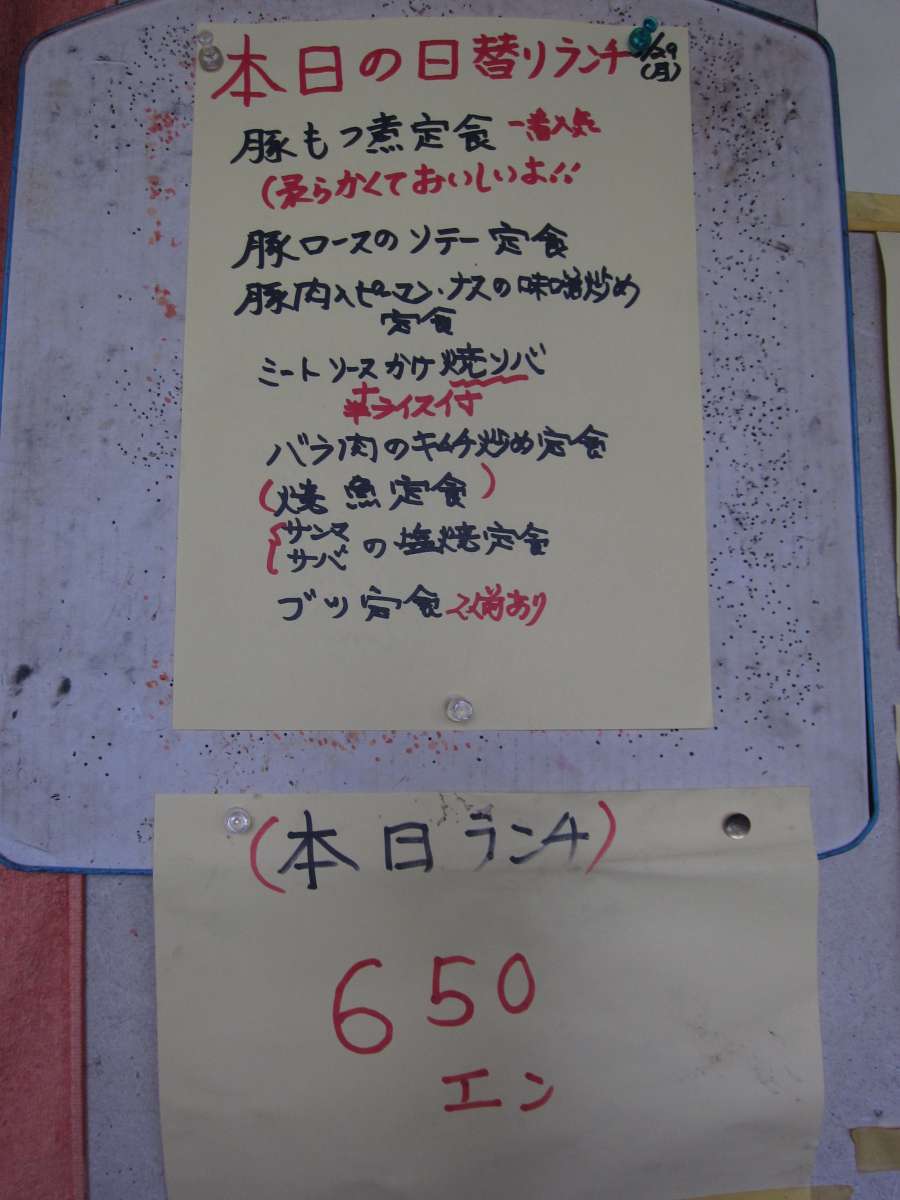 本日の日替りランチ /29(月)
豚もつ煮定食 一番人気
(柔らかくておいしいよ!!
豚ロースのソテー定食
豚肉入ピーマン・ナスの味噌炒め
定食
ミートソースかけ焼ソバ
半ライス付
バラ肉のキムチ炒め定食
(焼魚定食)
サンマ
サバの塩焼定食
ブツ定食 2人前あり
(本日ランチ)
650
エン